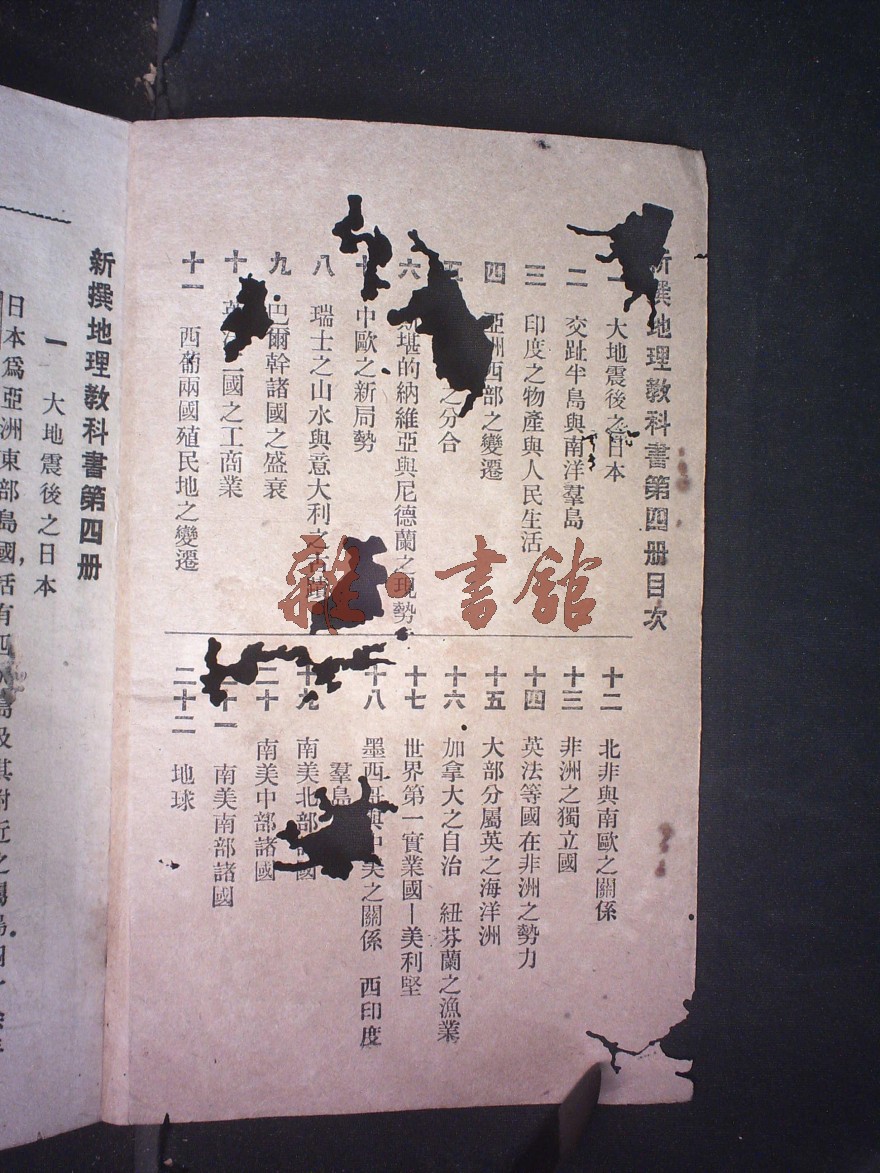 新撰地理教科書第四册目次
一 大地震後之日本
二 交趾半島與南洋羣島
三 印度之物產與人民生活
四 亞洲西部之變遷
五 之分合
六 堪的納維亞與尼德蘭之現勢
七 中歐之新局勢
八 瑞士之山水與意大利之古蹟
九 巴爾幹諸國之盛衰
十 英 國之工商業
十一 西葡兩國殖民地之變遷
十二 北非與南歐之關係
十三 非洲之獨立國
十四 英法等國在非洲之勢力
十五 大部分屬英之海洋洲
十六 加拿大之自治 紐芬蘭之漁業
十七 世界第一實業國—美利堅
十八 墨西哥與中美之關係 西印度
羣島
十九 南美北部 國
二十 南美中部諸國
二十一 南美南部諸國
二十二 地球
雜·書館
新撰地理教科書第四册
一 大地震後之日本
日本爲亞洲東部島國，括有四大島及其附近之屬島